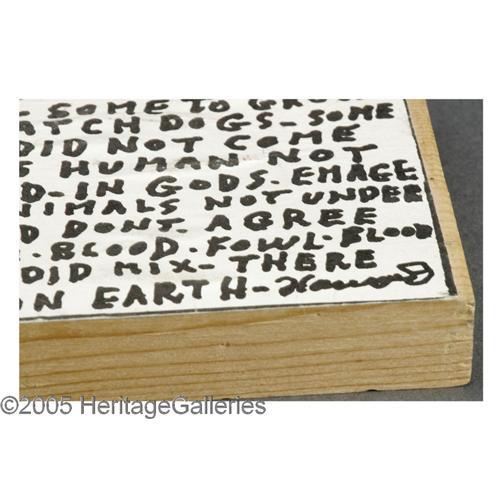 SOME TO
ATCH DOGS- SOME
DID NOT COME
S HUMAN NOT
D- IN GODS. EMAGE
NIMALS NOT UNDER
D DONT. AGREE
E. BLOOD. FOWL. BLOOD
DID MIX- THERE
ON EARTH-
©2005 HeritageGalleries